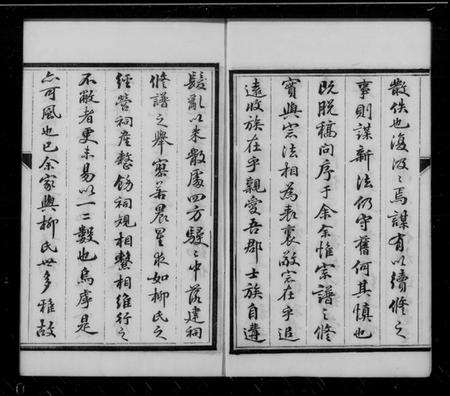 散佚也汲汲焉謀有以續修之
事則謀新法仍守舊何其慎也
既脱稿向序于余余惟宗譜之修
實與宗法相為表裏敬宗在乎追
遠收族在乎親愛吾郡士族自遘
髮亂以来散處四方駸駸中落建祠
修譜之舉寥若晨星求如柳氏之
經營祠產整飭祠規相繫相維行之
不敝者更未易以一二數也烏虖是
亦可風也已余家與柳氏世多雅故